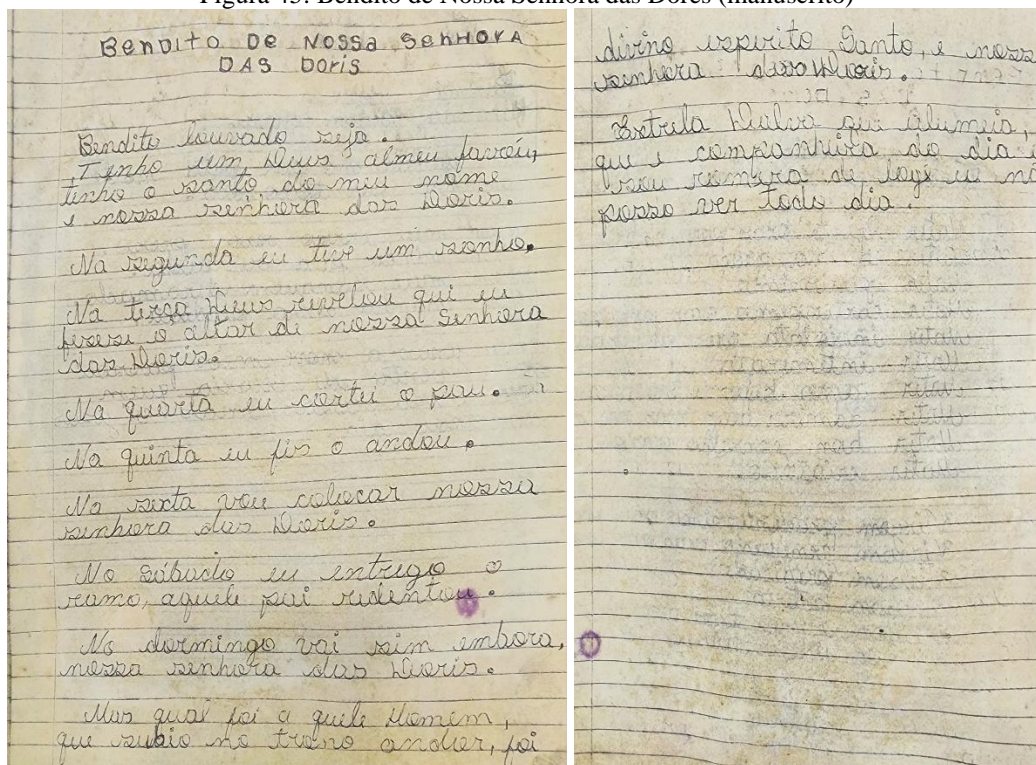 Figura 43: Bendito de Nossa Senhora das Dores (manuscrito)
Bendito De Nossa Senhora
DAS Doris
Bendito louvado seja.
Tenho um Deus almeu favoú,
tenho o santo do meu nome
e nossa senhora das Doris.
Na segunda eu tive um sonho.
Na terça Deus revelou qui eu
fizese o altar de nossa Senhora
das Doris.
Na quarta eu cortei o pau.
Na quinta eu fis o andou.
Na sexta vou colocar nossa
senhora das Doris.
No Sábado eu entrego o
ramo, aquele pai redentou.
No dormingo vai sim embora,
nossa senhora das Doris.
Mas quai foi a quele Homem,
que subio no trono andor, foi
divino espirito Santo, e nossa
senhora das Doris.
Estrela Dalva que alumeia,
que e companheira do dia
sou romera de loge eu
posso ver todo dia.